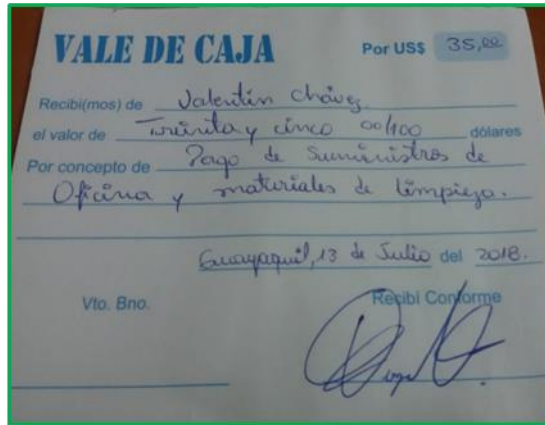 VALE DE CAJA Por US$ 35,00
Recibí(mos) de Valentín Chávez
el valor de Treinta y cinco 00/100 dólares
Por concepto de Pago de Suministros de
Oficina y materiales de limpieza.
Guayaquil, 13 de Julio del 2018.
Vto. Bno. Recibí Conforme